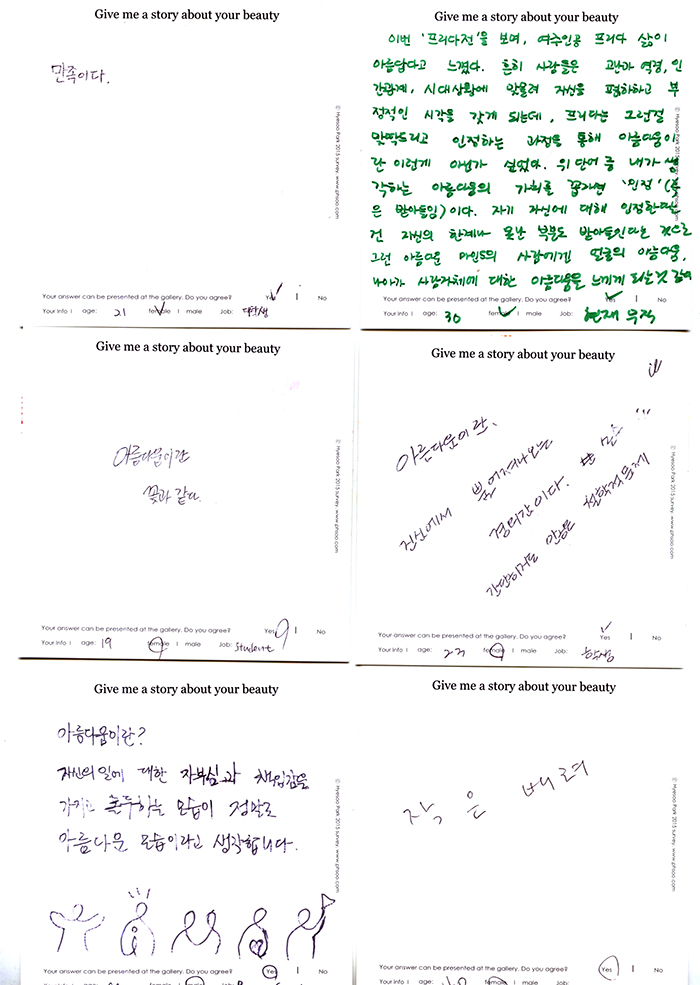 Give me a story about your beauty
만족이다.
© Hyesoo Park 2015 survey www.phsoo.com
Your answer can be presented at the gallery. Do you agree? Yes I No
Your Info I age: 21 female I male Job: 대학생
Give me a story about your beauty
이번 '프리다전'을 보며, 여주인공 프리다 삶이
아름답다고 느꼈다. 흔히 사람들은 고난과 역경, 인
간관계, 시대상황에 맞물려 자신을 폄하하고 부
정적인 시각을 갖게 되는데, 프리다는 그런걸
맞딱드리고 인정하는 과정을 통해 아름다움이
란 이런게 아닌가 싶었다. 위 단어 중 내가 생
각하는 아름다움의 가치를 꼽자면 '인정'
은 받아들임)이다. 자기 자신에 대해 인정한다는
건 자신의 한계나 못난 부분도 받아들인다는 것으로
그런 아름다운 마인드의 사람에겐 얼굴의 아름다움,
나아가 사람자체에 대한 아름다움을 느끼게 되는것 같아
© Hyesoo Park 2015 survey www.phsoo.com
Your answer can be presented at the gallery. Do you agree? Yes I No
Your Info I age: 30 female I male Job: 현재 무직
Give me a story about your beauty
아름다움이란
꽃과 같다.
© Hyesoo Park 2015 survey www.phsoo.com
Your answer can be presented at the gallery. Do you agree? Yes I No
Your Info I age: 19 female I male Job: Student
Give me a story about your beauty
아름다움이란,
전신에서 뿜어져나오는
경외감이다.
간단하지만 철학적 문제
© Hyesoo Park 2015 survey www.phsoo.com
Your answer can be presented at the gallery. Do you agree? Yes I No
Your Info I age: 23 female I male Job:
Give me a story about your beauty
아름다움이란?
자신의 일에 대한 자부심과 책임감을
가지고 몰두하는 모습이 정말로
아름다운 모습이라고 생각합니다.
© Hyesoo Park 2015 survey www.phsoo.com
Your answer can be presented at the gallery. Do you agree? Yes I No
Give me a story about your beauty
작은 배려
© Hyesoo Park 2015 survey www.phsoo.com
Your answer can be presented at the gallery. Do you agree? Yes I No